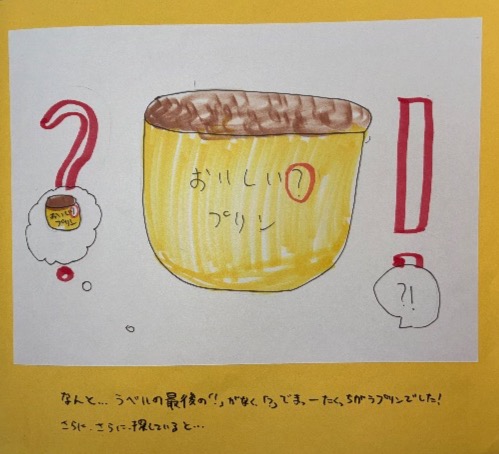 ?
おいしい?
プリン
!
おいしい?
プリン
?!
なんと…ラベルの最後の「!」がなく、「?」でまったく、ちがうプリンでした!
さらに、さらに、探していると…